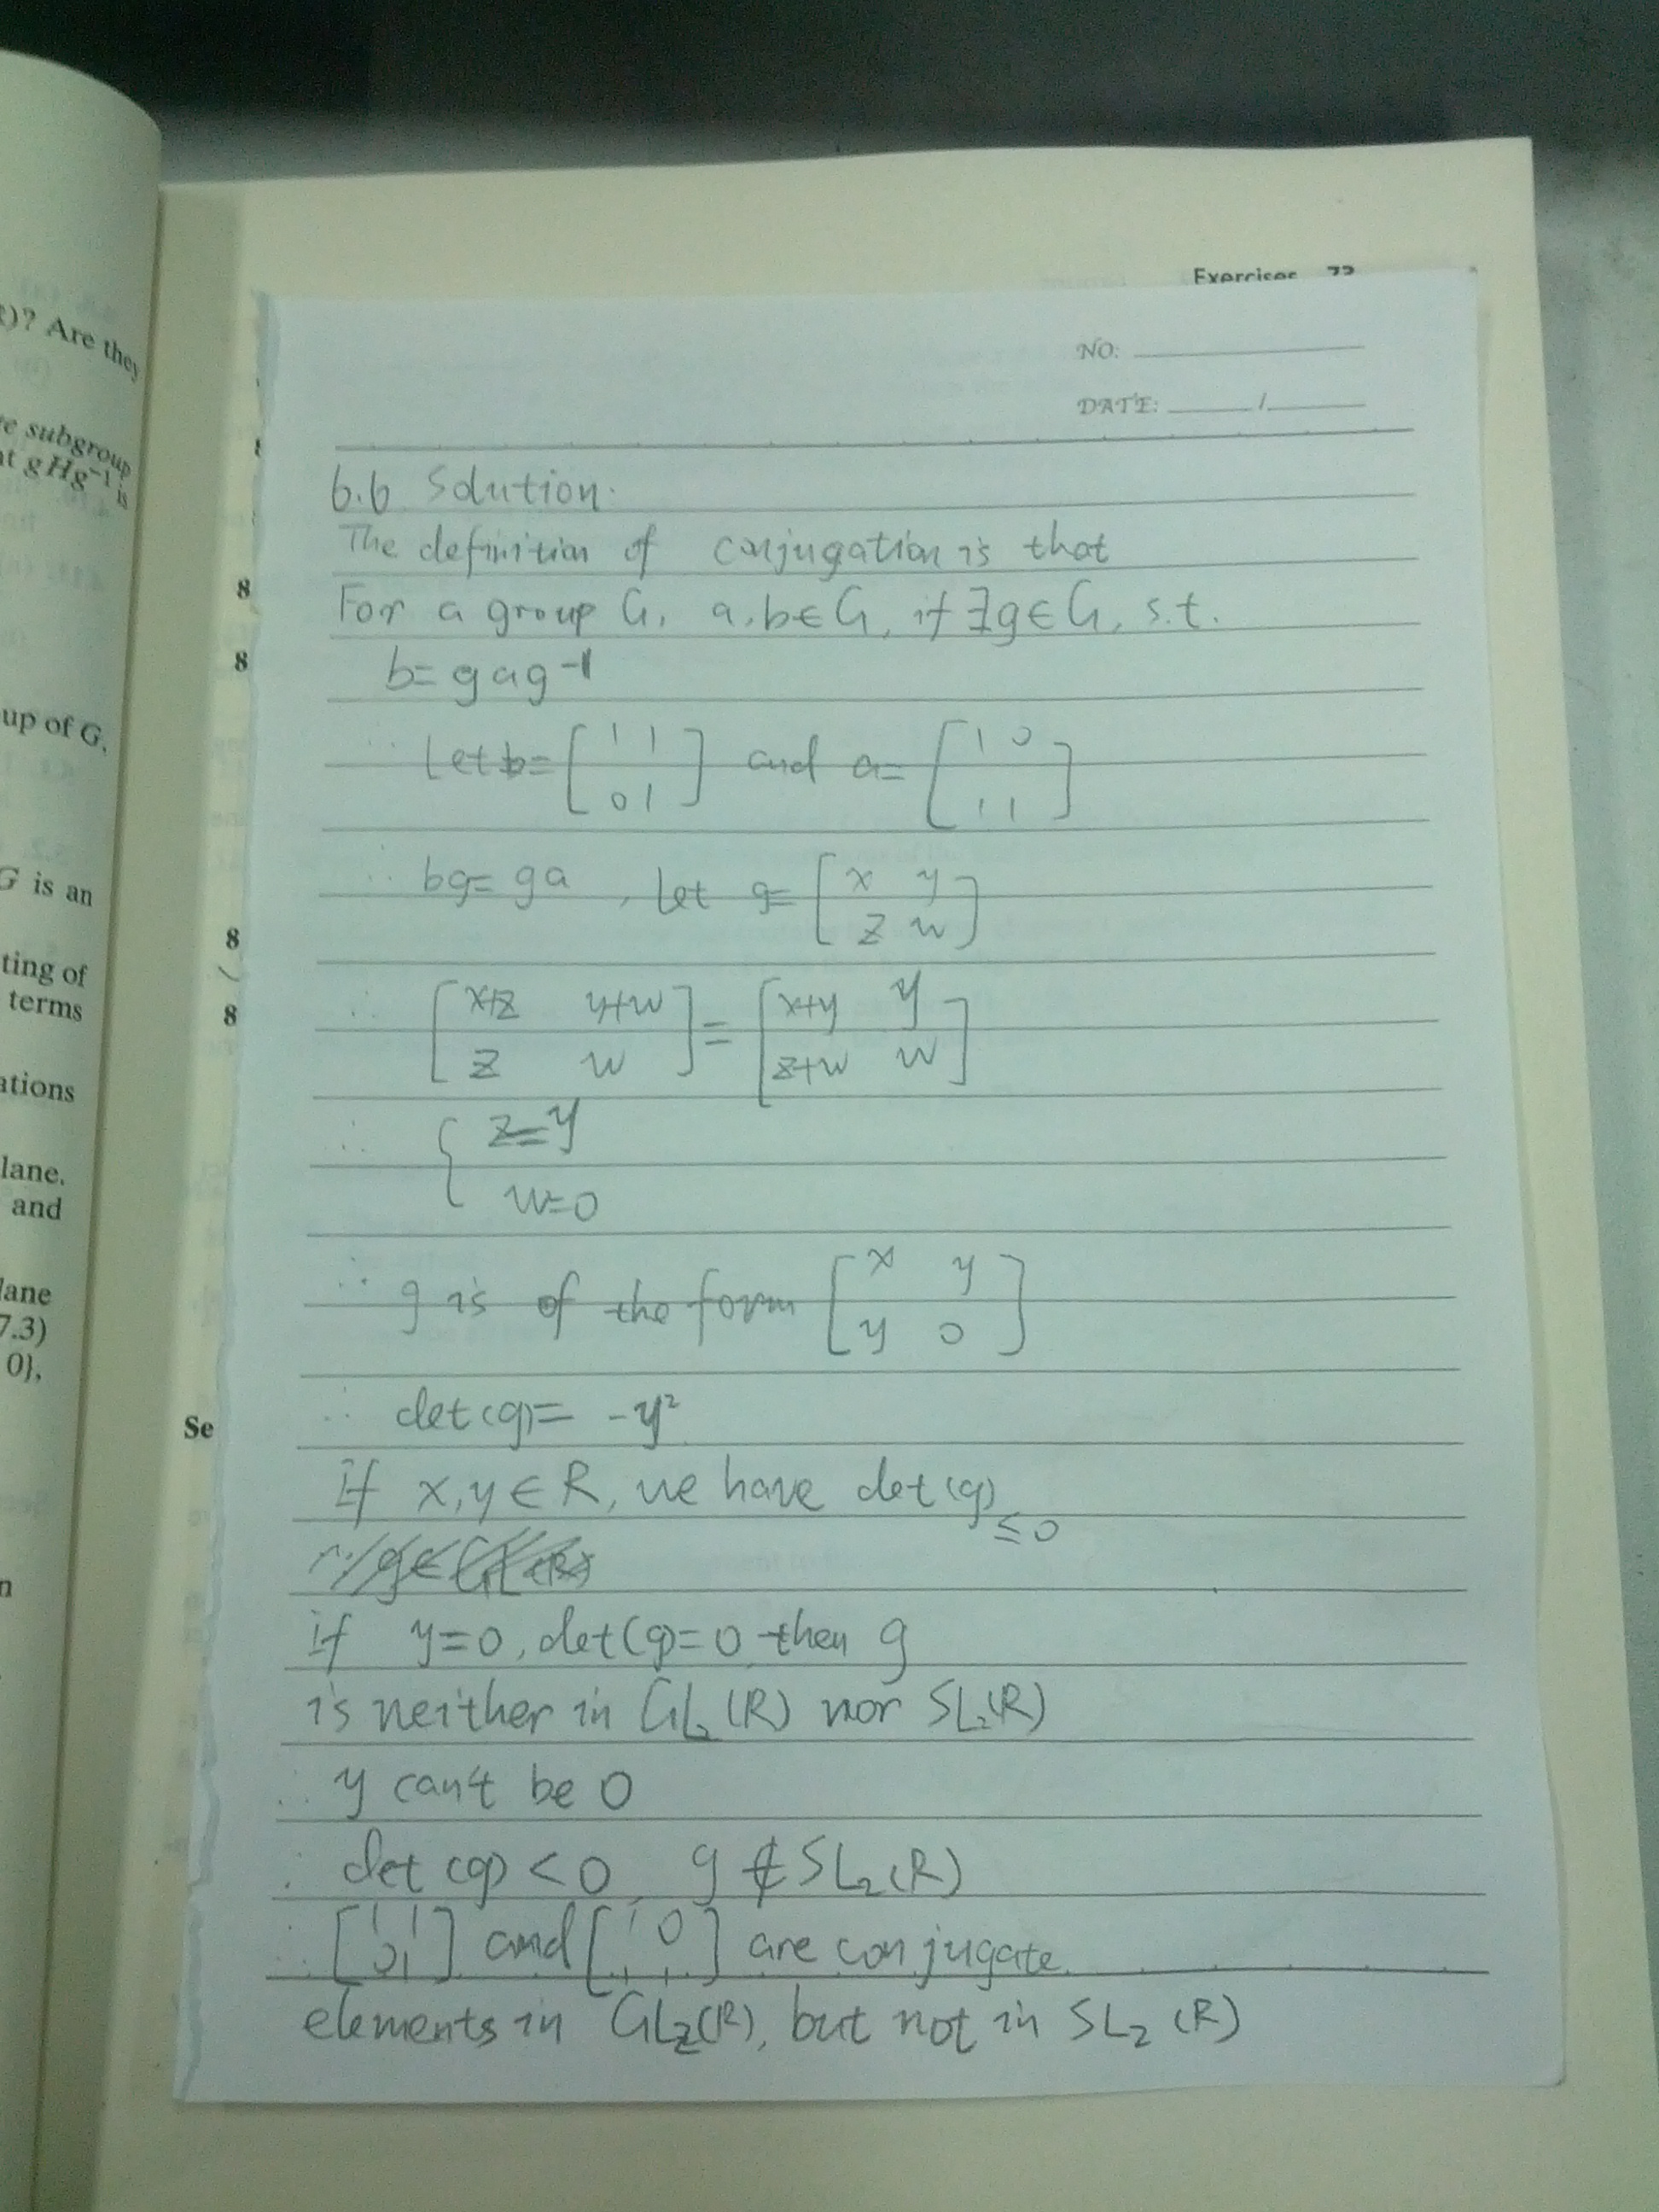 Exercises 73
)? Are they
e subgroup
at gHg⁻¹ is
up of G,
G is an
ting of
terms
ations
lane.
and
lane
7.3)
0},
n
8
8
8
8
Se
NO:
DATE: /
6.6 Solution.
The definition of conjugation is that
For a group G, a,b∈G, if ∃g∈G, s.t.
b=gag⁻¹
∴ Let b=[1 1; 0 1] and a=[1 0; 1 1]
∴ bg=ga, Let g=[x y; z w]
∴ [x+z y+w; z w]=[x+y y; z+w w]
∴ { z=y
w=0
∴ g is of the form [x y; y 0]
∴ det(g)= -y²
If x,y∈R, we have det(g) ≤0
if y=0, det(g)=0 then g
is neither in GL₂(R) nor SL₂(R)
∴ y can't be 0
∴ det(g)<0, g∉SL₂(R)
∴ [1 1; 0 1] and [1 0; 1 1] are conjugate
elements in GL₂(R), but not in SL₂(R)